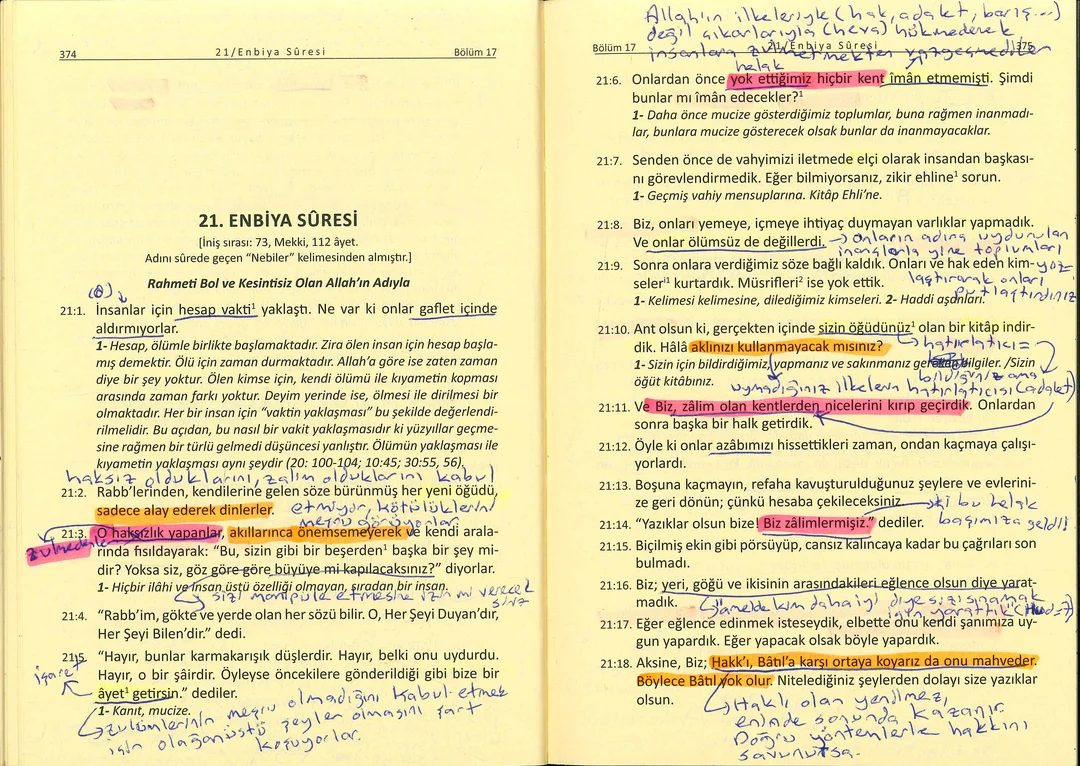 374
21/Enbiya Sûresi
Bölüm 17
21. ENBİYA SÛRESİ
[İniş sırası: 73, Mekki, 112 âyet.
Adını sûrede geçen "Nebiler" kelimesinden almıştır.]
Rahmeti Bol ve Kesintisiz Olan Allah'ın Adıyla
21:1. İnsanlar için hesap vakti¹ yaklaştı. Ne var ki onlar gaflet içinde
aldırmıyorlar.
1- Hesap, ölümle birlikte başlamaktadır. Zira ölen insan için hesap başla-
mış demektir. Ölü için zaman durmaktadır. Allah'a göre ise zaten zaman
diye bir şey yoktur. Ölen kimse için, kendi ölümü ile kıyametin kopması
arasında zaman farkı yoktur. Deyim yerinde ise, ölmesi ile dirilmesi bir
olmaktadır. Her bir insan için "vaktin yaklaşması" bu şekilde değerlendi-
rilmelidir. Bu açıdan, bu nasıl bir vakit yaklaşmasıdır ki yüzyıllar geçme-
sine rağmen bir türlü gelmedi düşüncesi yanlıştır. Ölümün yaklaşması ile
kıyametin yaklaşması aynı şeydir (20: 100-104; 10:45; 30:55, 56).
haksız olduklarını, zalim olduklarını kabul
21:2. Rabb'lerinden, kendilerine gelen söze bürünmüş her yeni öğüdü,
sadece alay ederek dinlerler. etmiyor, kötülüklerini
meşru görüyorlar.
21:3. O haksızlık yapanlar, akıllarınca önemsemeyerek ve kendi arala-
zulmedenler
rında fısıldayarak: "Bu, sizin gibi bir beşerden¹ başka bir şey mi-
dir? Yoksa siz, göz göre göre büyüye mi kapılacaksınız?" diyorlar.
1- Hiçbir ilâhi ve insan üstü özelliği olmayan, sıradan bir insan.
sizi manipüle etmesine izin mi verecek
siniz
21:4. "Rabb'im, gökte ve yerde olan her sözü bilir. O, Her Şeyi Duyan'dır,
Her Şeyi Bilen'dir." dedi.
21:5. "Hayır, bunlar karmakarışık düşlerdir. Hayır, belki onu uydurdu.
işaret
Hayır, o bir şâirdir. Öyleyse öncekilere gönderildiği gibi bize bir
âyet¹ getirsin." dediler.
1- Kanıt, mucize.
zulümlerinin meşru olmadığını kabul etmek
için olağanüstü şeyler olmasını şart
koşuyorlar.
Allah'ın ilkeleriyle (hak, adalet, barış...)
değil çıkarlarıyla (heva) hükmederek
Bölüm 17
21/Enbiya Sûresi
375
insanlara zulmetmekten vazgeçmediler
helak
21:6. Onlardan önce yok ettiğimiz hiçbir kent îmân etmemişti. Şimdi
bunlar mı îmân edecekler?¹
1- Daha önce mucize gösterdiğimiz toplumlar, buna rağmen inanmadı-
lar, bunlara mucize gösterecek olsak bunlar da inanmayacaklar.
21:7. Senden önce de vahyimizi iletmede elçi olarak insandan başkası-
nı görevlendirmedik. Eğer bilmiyorsanız, zikir ehline¹ sorun.
1- Geçmiş vahiy mensuplarına. Kitâp Ehli'ne.
21:8. Biz, onları yemeye, içmeye ihtiyaç duymayan varlıklar yapmadık.
Ve onlar ölümsüz de değillerdi. onların adına uydurulan
inançlarla yine toplumları
21:9. Sonra onlara verdiğimiz söze bağlı kaldık. Onları ve hak eden kim-
yoz
seleri¹ kurtardık. Müsrifleri² ise yok ettik. laştırarak onları
1- Kelimesi kelimesine, dilediğimiz kimseleri. 2- Haddi aşanları.
putlaştırdınız
21:10. Ant olsun ki, gerçekten içinde sizin öğüdünüz¹ olan bir kitâp indir-
dik. Hâlâ aklınızı kullanmayacak mısınız? hatırlatıcı =
1- Sizin için bildirdiğimiz, yapmanız ve sakınmanız gereken bilgiler. /Sizin
öğüt kitâbınız. bildiğiniz ama
uymadığınız ilkelerin hatırlatıcısı (adalet)
21:11. Ve Biz, zâlim olan kentlerden nicelerini kırıp geçirdik. Onlardan
sonra başka bir halk getirdik.
21:12. Öyle ki onlar azâbımızı hissettikleri zaman, ondan kaçmaya çalışı-
yorlardı.
21:13. Boşuna kaçmayın, refaha kavuşturulduğunuz şeylere ve evlerini-
ze geri dönün; çünkü hesaba çekileceksiniz. ki bu helak
21:14. "Yazıklar olsun bize! Biz zâlimlermişiz." dediler. başımıza geldi!
21:15. Biçilmiş ekin gibi pörsüyüp, cansız kalıncaya kadar bu çağrıları son
bulmadı.
21:16. Biz; yeri, göğü ve ikisinin arasındakileri eğlence olsun diye yarat-
madık. amelde kim daha iyi diye sizi sınamak
için yarattık (Hud=7)
21:17. Eğer eğlence edinmek isteseydik, elbette onu kendi şanımıza uy-
gun yapardık. Eğer yapacak olsak böyle yapardık.
21:18. Aksine, Biz; Hakk'ı, Bâtıl'a karşı ortaya koyarız da onu mahveder.
Böylece Bâtıl yok olur. Nitelediğiniz şeylerden dolayı size yazıklar
olsun.
Haklı olan yenilmez,
eninde sonunda kazanır.
Doğru yöntemlerle hakkını
savunursa.